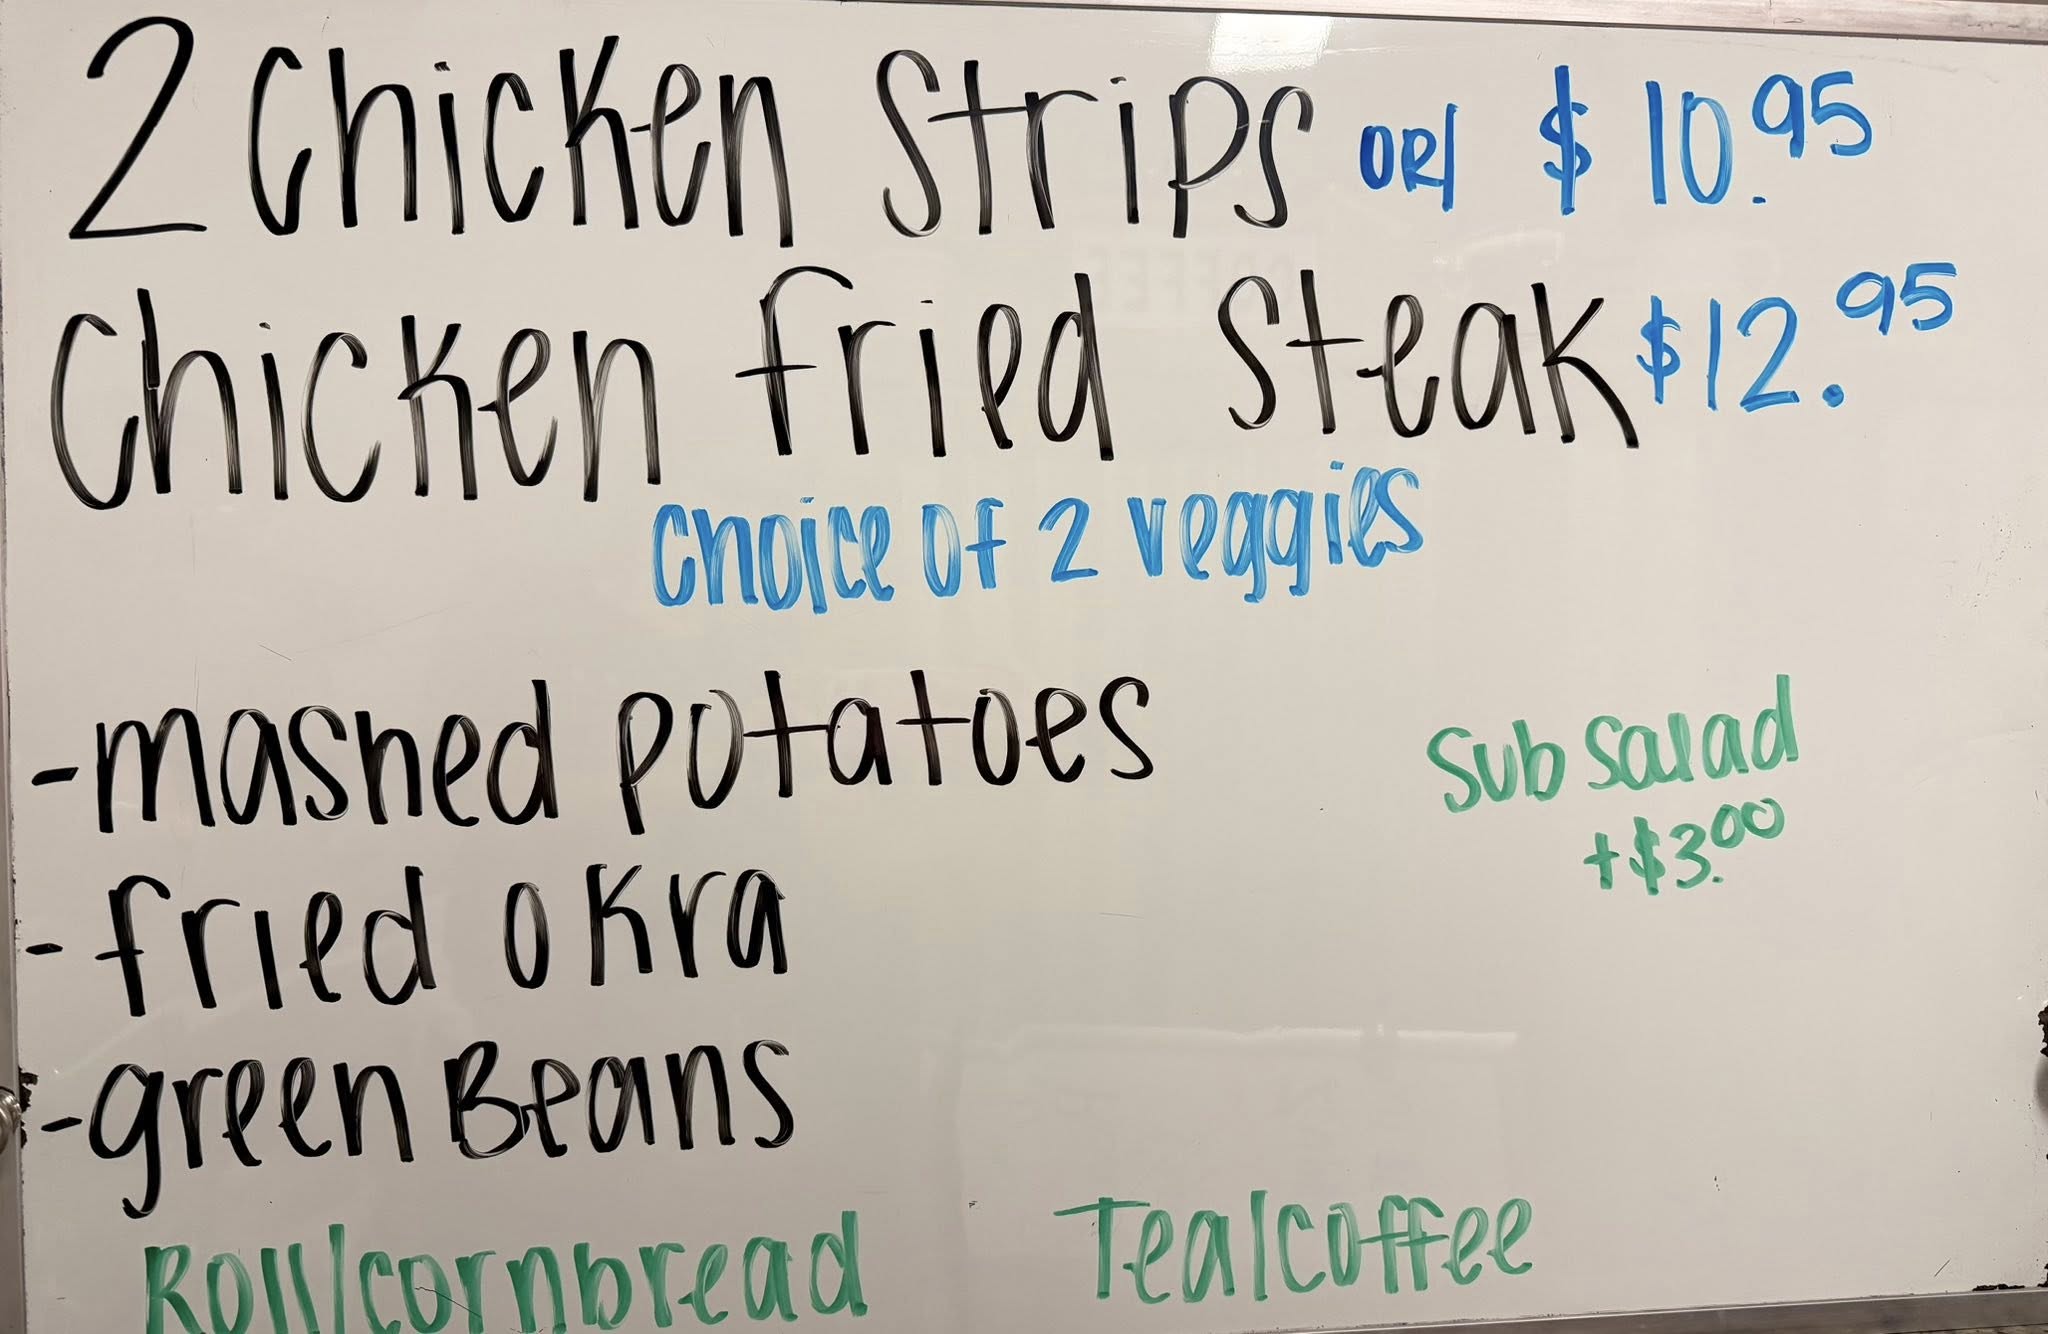 2 Chicken Strips OR/ $10.95
Chicken fried Steak $12.95
Choice of 2 veggies
-mashed potatoes
Sub Salad
+$3.00
-fried okra
-green Beans
Roll/cornbread Tea/coffee